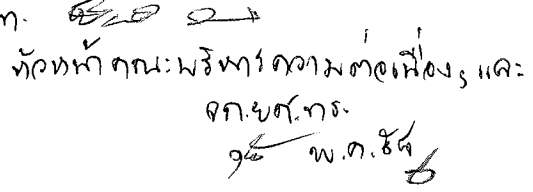 ท.
หัวหน้าคณะบริหารความต่อเนื่อง, และ
จก.ยศ.ทร.
พ.ค.